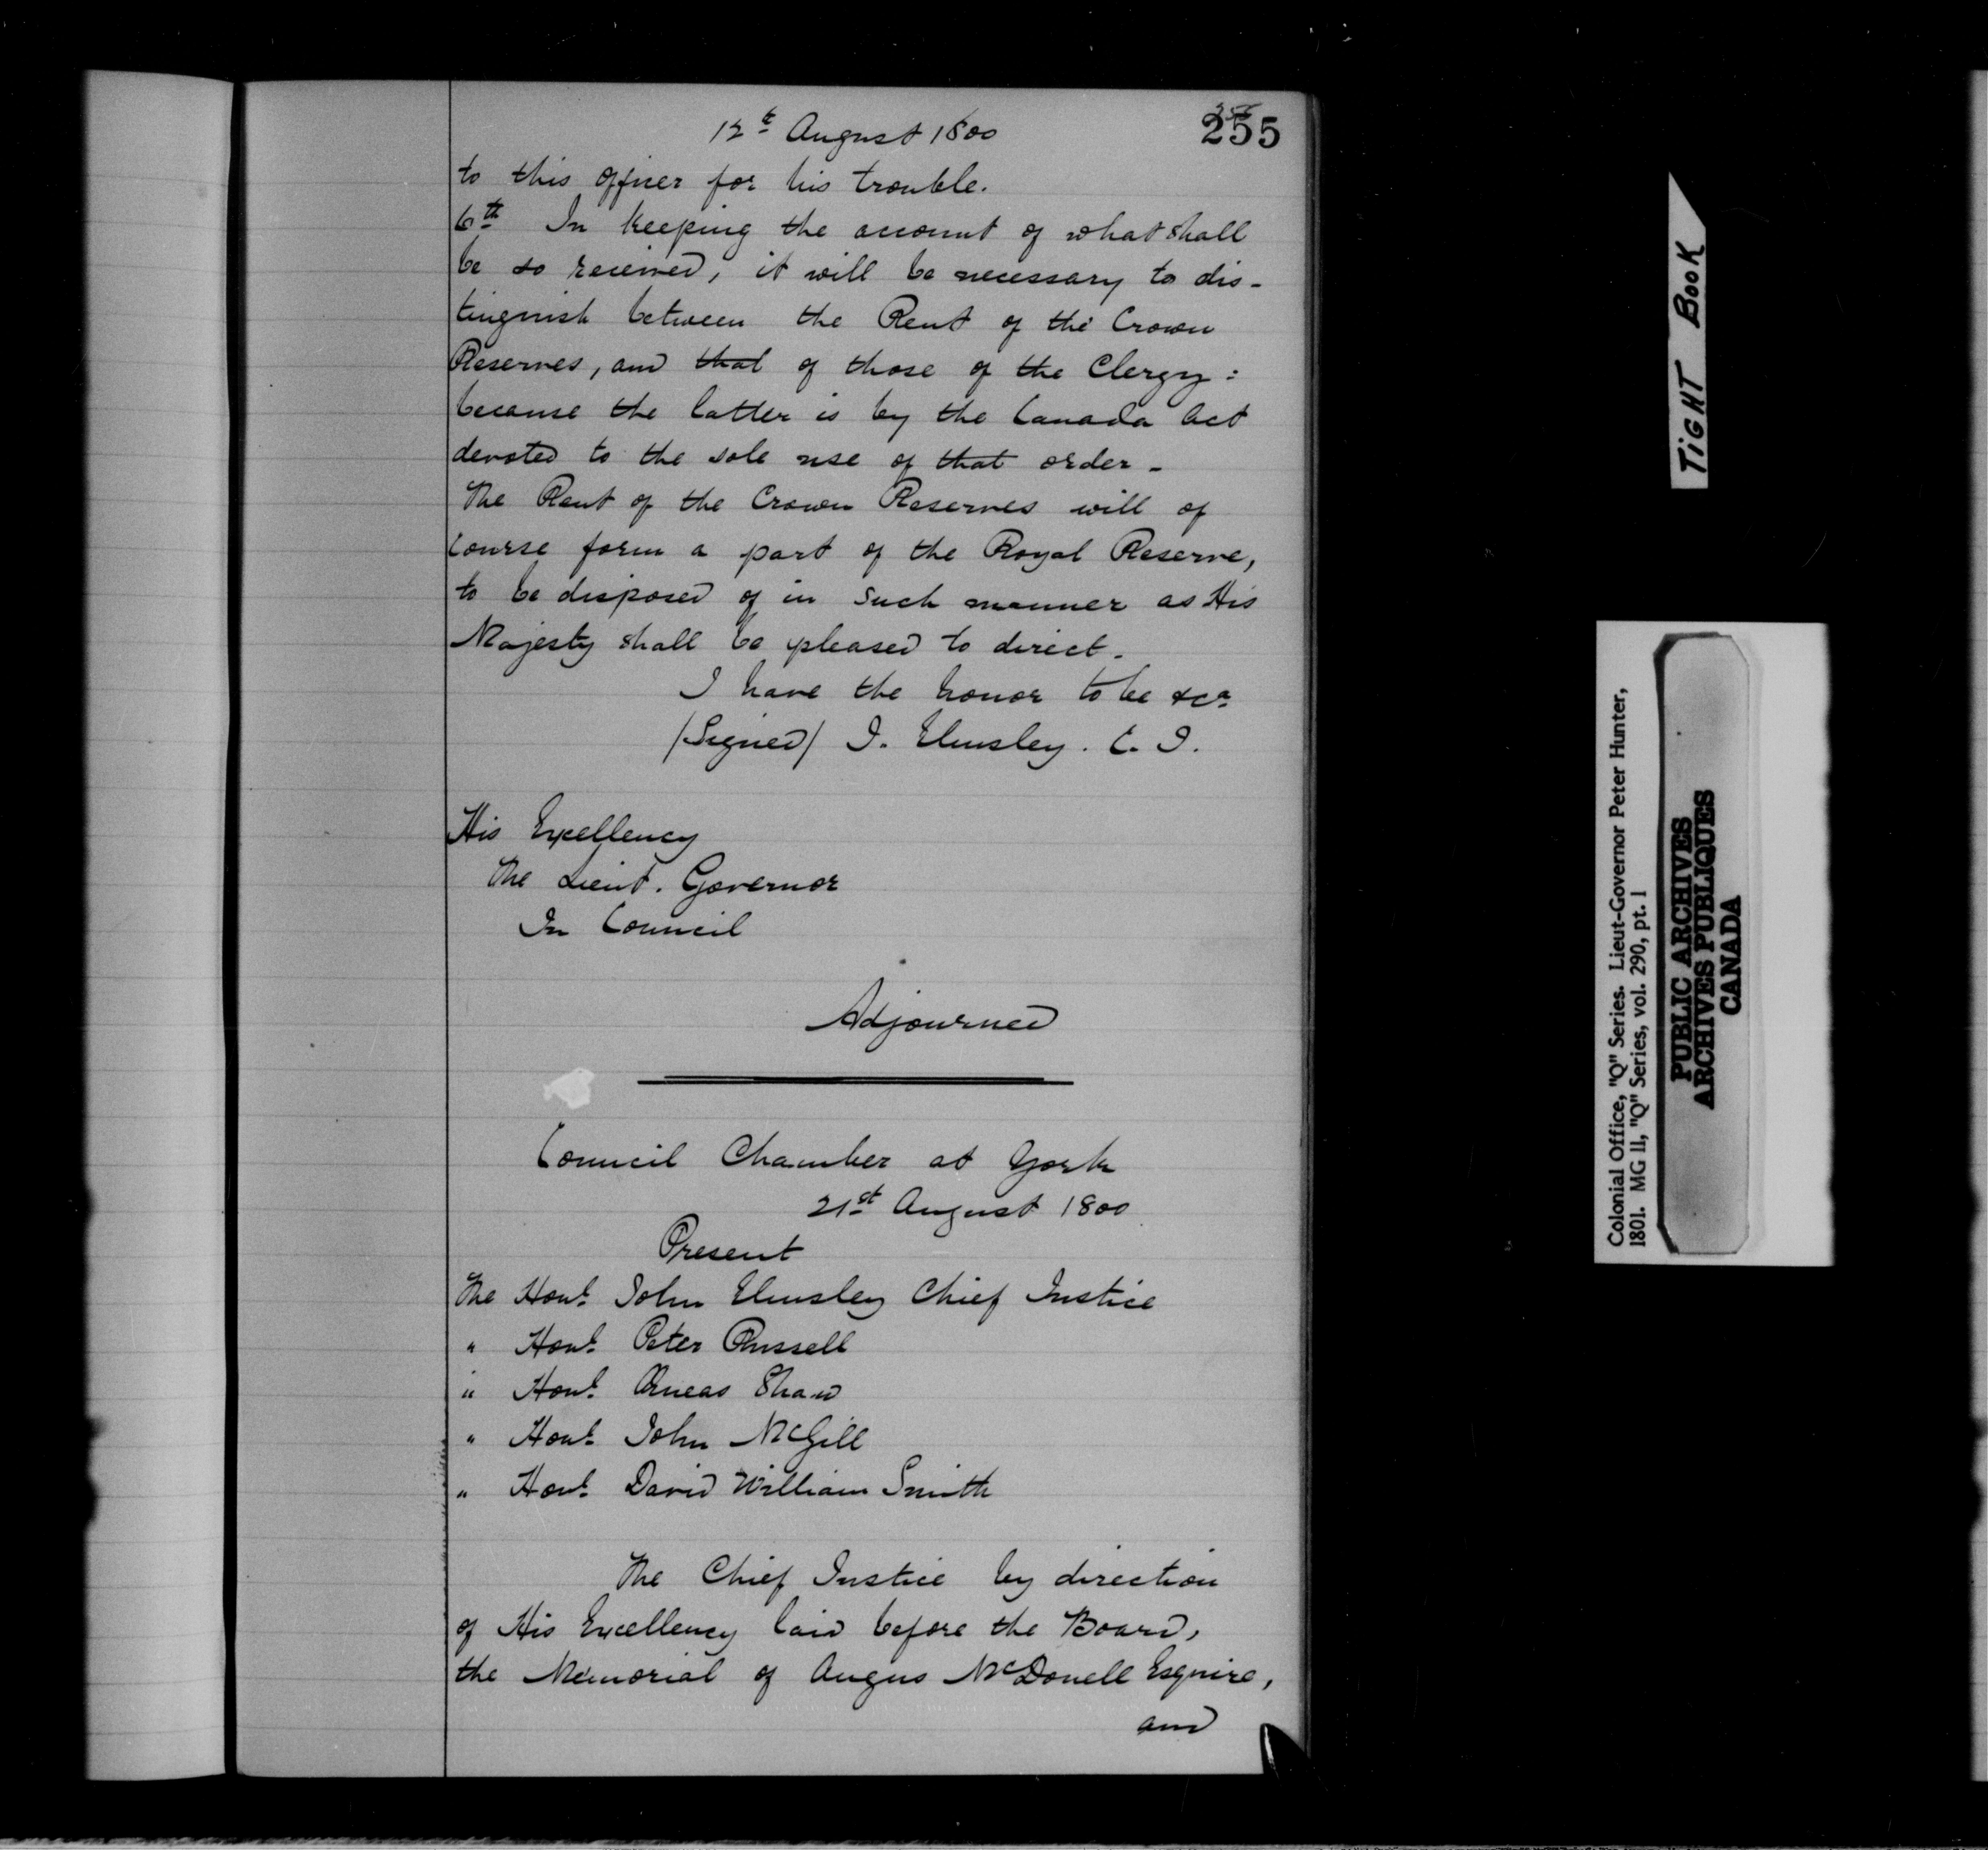 12t August 1800
255
to this officer for his trouble.
6th In keeping the account of what shall
be so received, it will be necessary to dis-
tinguish between the Rent of the Crown
Reserves, and that of those of the Clergy:
because the latter is by the Canada Act
devoted to the sole use of that order-
The Rent of the Crown Reserves will of
Course form a part of the Royal Reserve,
to be disposed of in such manner as His
Majesty shall be pleased to direct.
I have the honor to be &ca
/Signed/ J. Elmsley. C. J.
His Excellency
The Lieut. Governor
In Council
Adjourned
Council Chamber at York
21st August 1800
Present
The Honl. John Elmsley Chief Justice
" Honl. Peter Russell
" Honl. Æneas Shaw
" Honl. John McGill
" Honl. David William Smith
The Chief Justice by direction
of His Excellency laid before the Board,
the Memorial of Angus McDonell Esquire,
and
TIGHT BOOK
Colonial Office, "Q" Series. Lieut-Governor Peter Hunter,
1801. MG 11, "Q" Series, vol. 290, pt. 1
PUBLIC ARCHIVES
ARCHIVES PUBLIQUES
CANADA